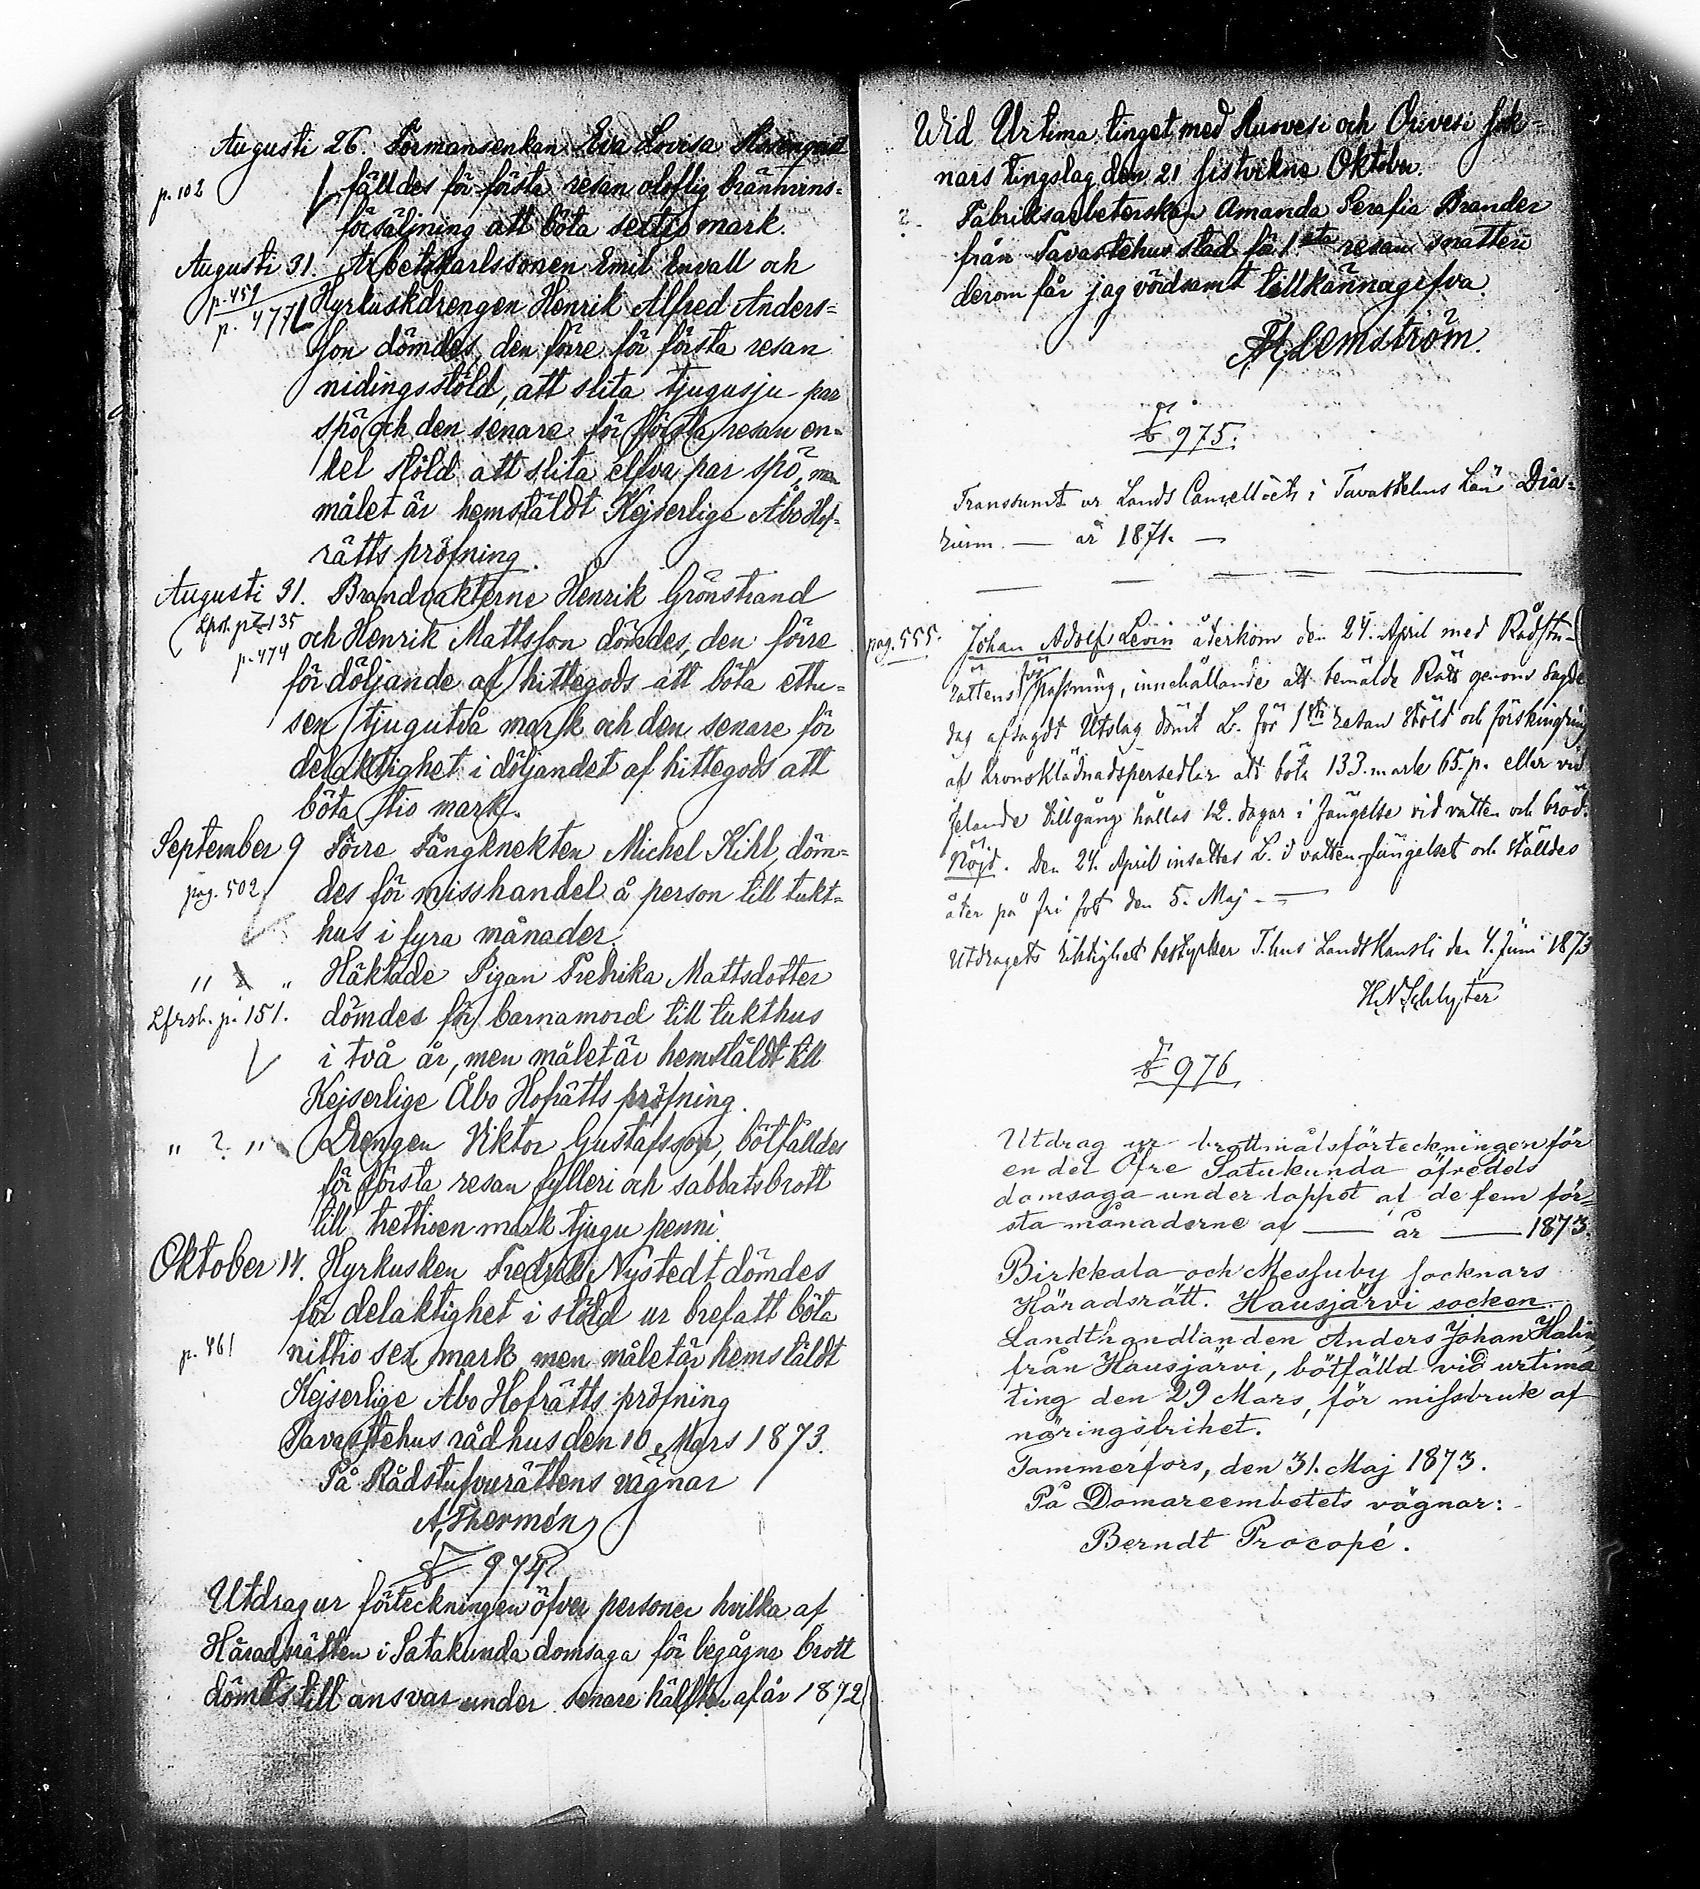 Augusti 26. Formansenkan Eva Lovisa
p. 102 fälldes för första resan oloflig bränvins-
försäljning att böta sextio mark.
Augusti 31. Arbetskarlssonen Emil Envall och
p. 459
p. 477 Hyrkuskdrengen Henrik Alfred Anders-
son dömdes, den förre för första resan
nidingsstöld, att slita tjugusju par
spö och den senare för första resan en-
kel stöld att slita elfva par spö, men
målet är hemstäldt Kejserlige Åbo Hof-
rätts pröfning.
Augusti 31. Brandvakterne Henrik Grönstrand
p. 135
p. 474 och Henrik Mattsson dömdes, den förre
för döljande af hittegods att böta ettu-
sen tjugutvå mark och den senare för
delaktighet i döljandet af hittegods att
böta tio mark.
September 9 Förre Fångknekten Michel Kihl, döm-
pag. 502. des för misshandel å person till tukt-
hus i fyra månader.
" " Häktade Pigan Fredrika Mattsdotter
Lfrsb. p. 151. dömdes för barnamord till tukthus
i två år, men målet är hemstäldt till
Kejserlige Åbo Hofrätts pröfning.
" ? " Drengen Viktor Gustafsson, bötfälldes
för första resan fylleri och sabbatsbrott
till trettioen mark tjugu penni.
Oktober 14. Hyrkusken Fredrik Nystedt dömdes
för delaktighet i stöld ur bref att böta
p. 461 nittio sex mark, men målet är hemstäldt
Kejserlige Åbo Hofrätts pröfning
Tavastehus rådhus den 10 Mars 1873.
På Rådstufvurättens vägnar
A. Thermén
974
Utdrag ur förteckningen öfver personer hvilka af
Häradsrätten i Satakunda domsaga för begågne brott
dömts till ansvar under senare hälften af år 1872
Wid Urtima tinget med Ruovesi och Orivesi sok-
nars tingslag den 21 sistvikne Oktober.
? Fabriksarbeterskan Amanda Serafia Brander
från Tavastehus stad för 1sta resan snatteri
derom får jag vördsamt tillkännagifva.
975.
Transsumt ur Lands Cancelliets i Tavastehus Län Dia-
rium. — år 1871. —
pag. 555. Johan Adolf Levin återkom den 24. April med Rådstu-
rättens förpassning, innehållande att bemälde Rätt genom sagde
dag afsagdt Utslag dömt L. för 1sta resan stöld och förskingring
af kronoklädnadspersedlar att böta 133. mark 65. p. eller vid
felande tillgång hållas 12. dagar i fängelse vid vatten och bröd.
Nöjd. Den 24. April insattes L. i vattenfängelset och ställdes
åter på fri fot den 5. Maj. —
Utdragets riktighet bestyrker T.hus Landskansli den 4. Juni 1873
H. N. Schlyter
976
Utdrag ur brottmålsförteckningen för
en del Öfre Satakunda äfredels
domsaga under loppet af de fem för-
sta månaderne af — år — 1873.
Birkkala och Messuby socknars
Häradsrätt. Hausjärvi socken.
Landthandlanden Anders Johan Halin,
från Hausjärvi, bötfälld vid urtima
ting den 29 Mars, för missbruk af
näringsfrihet.
Tammerfors, den 31. Maj 1873.
På Domareembetets vägnar:
Berndt Procopé.